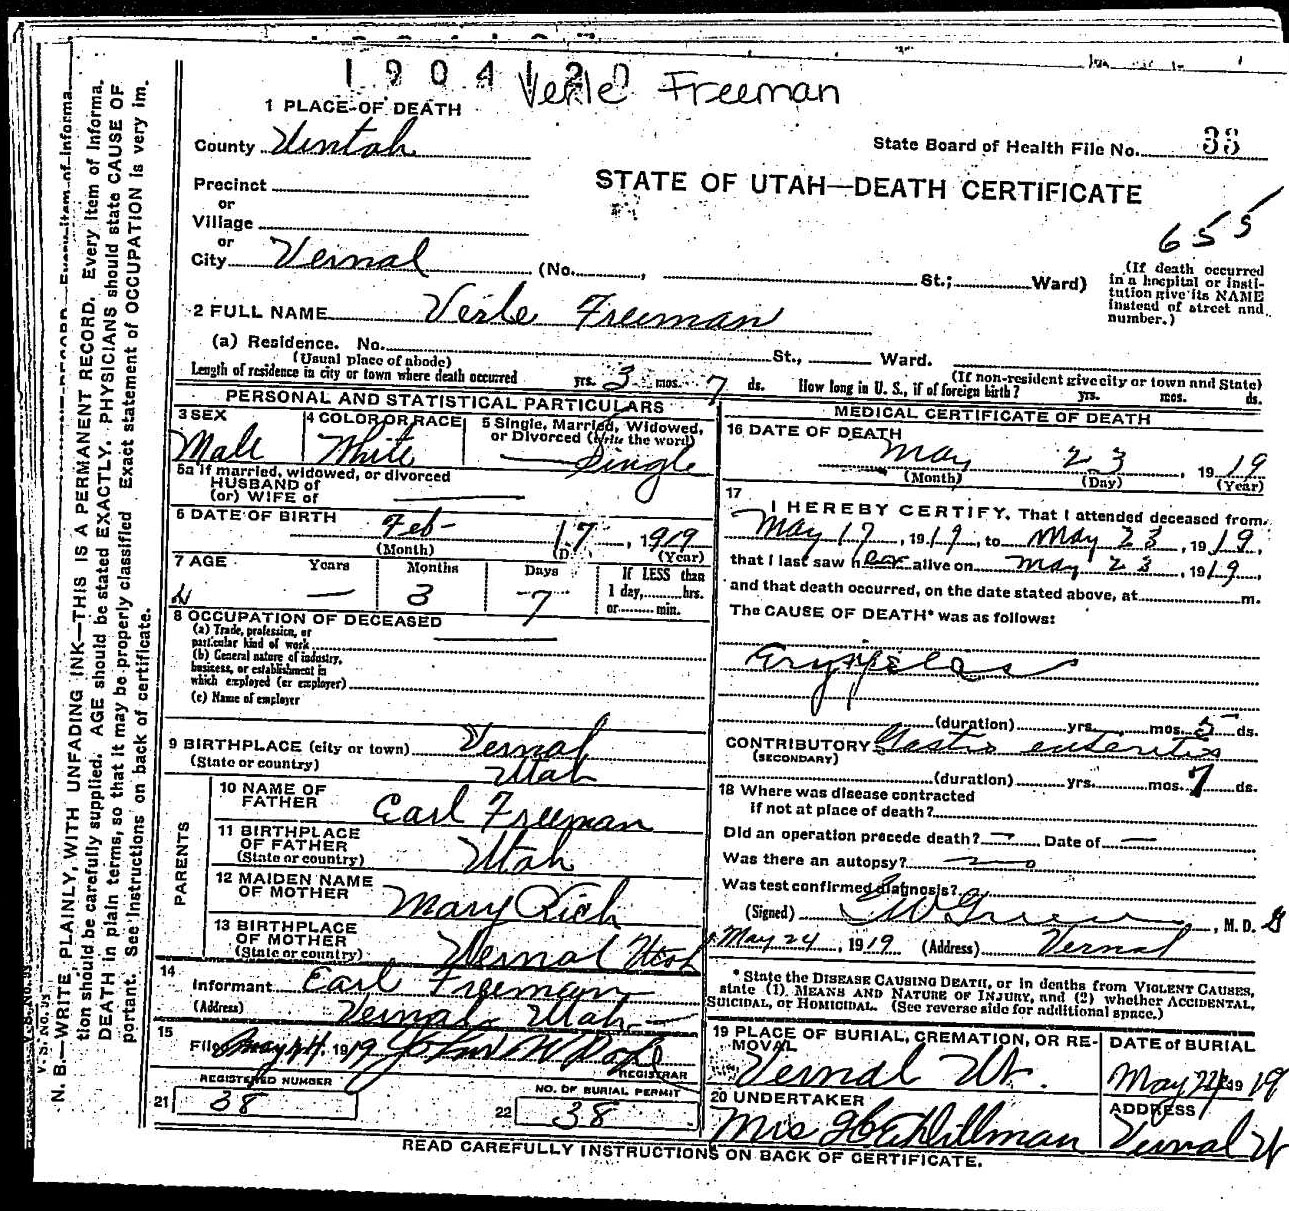 1904120 Verle Freeman
1 PLACE OF DEATH
County Uintah
State Board of Health File No. 33
Precinct
or
Village
or
City Vernal (No. , St.; Ward)
STATE OF UTAH—DEATH CERTIFICATE
655
(If death occurred
in a hospital or insti-
tution give its NAME
instead of street and
number.)
2 FULL NAME Verle Freeman
(a) Residence. No. St., Ward.
(Usual place of abode) (If non-resident give city or town and State)
Length of residence in city or town where death occurred yrs. 3 mos. 7 ds. How long in U. S., if of foreign birth? yrs. mos. ds.
PERSONAL AND STATISTICAL PARTICULARS
3 SEX
Male
4 COLOR OR RACE
White
5 Single, Married, Widowed,
or Divorced (Write the word)
Single
5a If married, widowed, or divorced
HUSBAND of
(or) WIFE of
6 DATE OF BIRTH
Feb 17, 1919
(Month) (D (Year)
7 AGE Years Months Days If LESS than
— 3 7 1 day, hrs.
or min.
8 OCCUPATION OF DECEASED
(a) Trade, profession, or
particular kind of work
(b) General nature of industry,
business, or establishment in
which employed (or employer)
(c) Name of employer
9 BIRTHPLACE (city or town) Vernal
(State or country) Utah
PARENTS
10 NAME OF
FATHER Earl Freeman
11 BIRTHPLACE
OF FATHER
(State or country) Utah
12 MAIDEN NAME
OF MOTHER Mary Rich
13 BIRTHPLACE
OF MOTHER
(State or country) Vernal Utah
14
Informant Earl Freeman
(Address) Vernal Utah
15
Filed May 24, 1919 John N Pope
REGISTRAR
REGISTERED NUMBER
21 38
NO. OF BURIAL PERMIT
22 38
MEDICAL CERTIFICATE OF DEATH
16 DATE OF DEATH
May 23, 1919
(Month) (Day) (Year)
17
I HEREBY CERTIFY, That I attended deceased from
May 17, 1919, to May 23, 1919,
that I last saw her alive on May 23, 1919,
and that death occurred, on the date stated above, at m.
The CAUSE OF DEATH* was as follows:
Erysipelas
(duration) yrs. mos. 5 ds.
CONTRIBUTORY Gastro enteritis
(SECONDARY)
(duration) yrs. mos. 7 ds.
18 Where was disease contracted
if not at place of death?
Did an operation precede death? — Date of —
Was there an autopsy? no
Was test confirmed diagnosis?
(Signed) , M. D.
May 24, 1919 (Address) Vernal
* State the DISEASE CAUSING DEATH, or in deaths from VIOLENT CAUSES,
state (1) MEANS AND NATURE OF INJURY, and (2) whether ACCIDENTAL,
SUICIDAL, or HOMICIDAL. (See reverse side for additional space.)
19 PLACE OF BURIAL, CREMATION, OR RE-
MOVAL
Vernal Ut.
DATE of BURIAL
May 24 1919
20 UNDERTAKER
Mrs Dillman
ADDRESS
Vernal Ut
READ CAREFULLY INSTRUCTIONS ON BACK OF CERTIFICATE.
V. S. No.
N. B.—WRITE PLAINLY, WITH UNFADING INK—THIS IS A PERMANENT RECORD. Every item of informa-
tion should be carefully supplied. AGE should be stated EXACTLY. PHYSICIANS should state CAUSE OF
DEATH in plain terms, so that it may be properly classified. Exact statement of OCCUPATION is very im-
portant. See instructions on back of certificate.